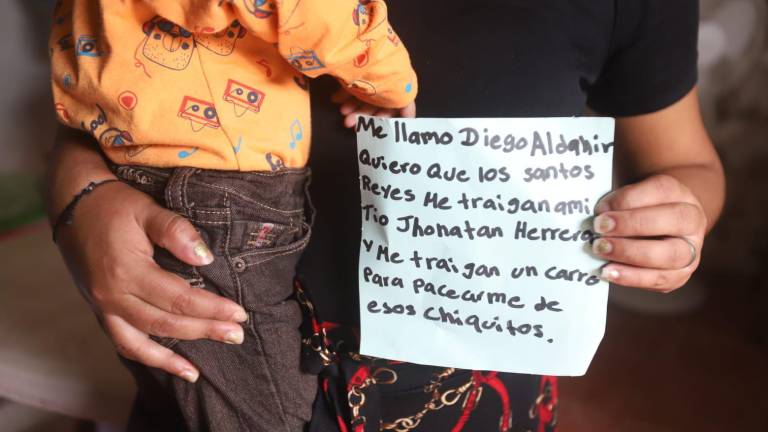 Me llamo Diego Aldahir
Quiero Que los santos
Reyes Me traigan ami
Tio Jhonatan Herrera
y Me traigan un carro
Para pacearme de
esos chiquitos.